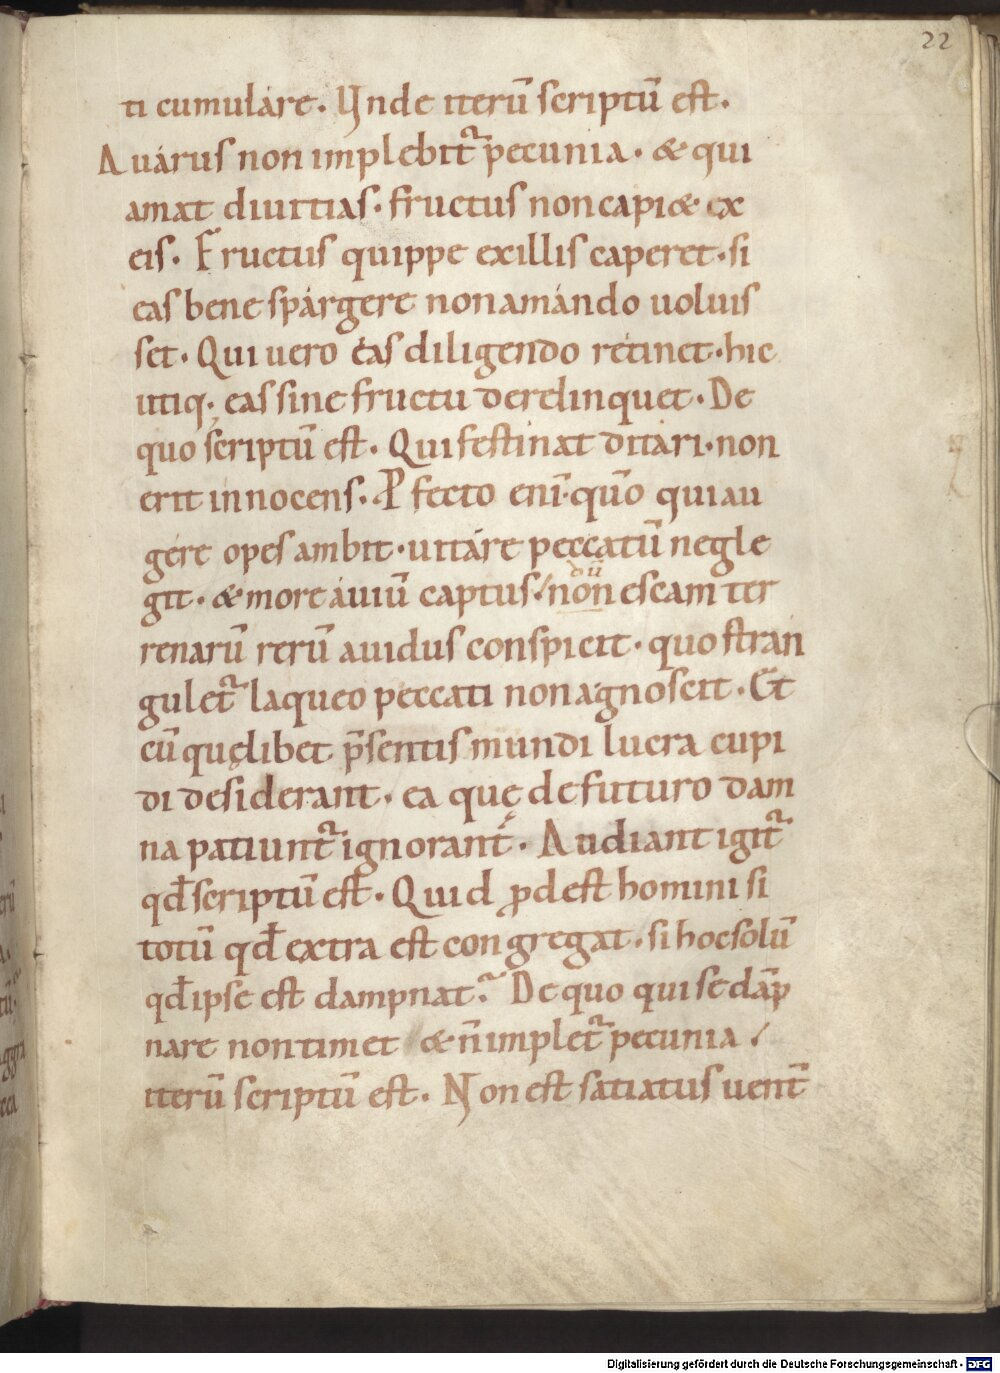 22
ti cumulare. Unde iterū scriptū est.
Auarus non implebit᷑ pecunia. & qui
amat diuitias. fructus non capi& ex
eis. Fructus quippe ex illis caperet. si
eas bene spargere non amando uoluis
set. Qui uero eas diligendo retinet. hic
utiq; eas sine fructu derelinquet. De
quo scriptū est. Qui festinat ditari. non
erit innocens. Pfecto eni̅. qu̅o qui au
gere opes ambit. uitare peccatū negle
git. & more auiū captus. / non dū escam ter
renarū rerū auidus conspicit. quo stran
gulet᷑ laqueo peccati non agnoscit. Et
cū quęlibet p̄sentis mundi lucra cupi
di desiderant. ea quę de futuro dam
na patiunt᷑ ignorant. Audiant igit᷑
qđ scriptū est. Quid ꝓdest homini si
totū qđ extra est congregat. si hoc solū
qđ ipse est dampnat. De quo qui se dāp
nare non timet & n̄ implet᷑ pecunia /
iterū scriptū est. Non est satiatus uent̄
Digitalisierung gefördert durch die Deutsche Forschungsgemeinschaft - DFG